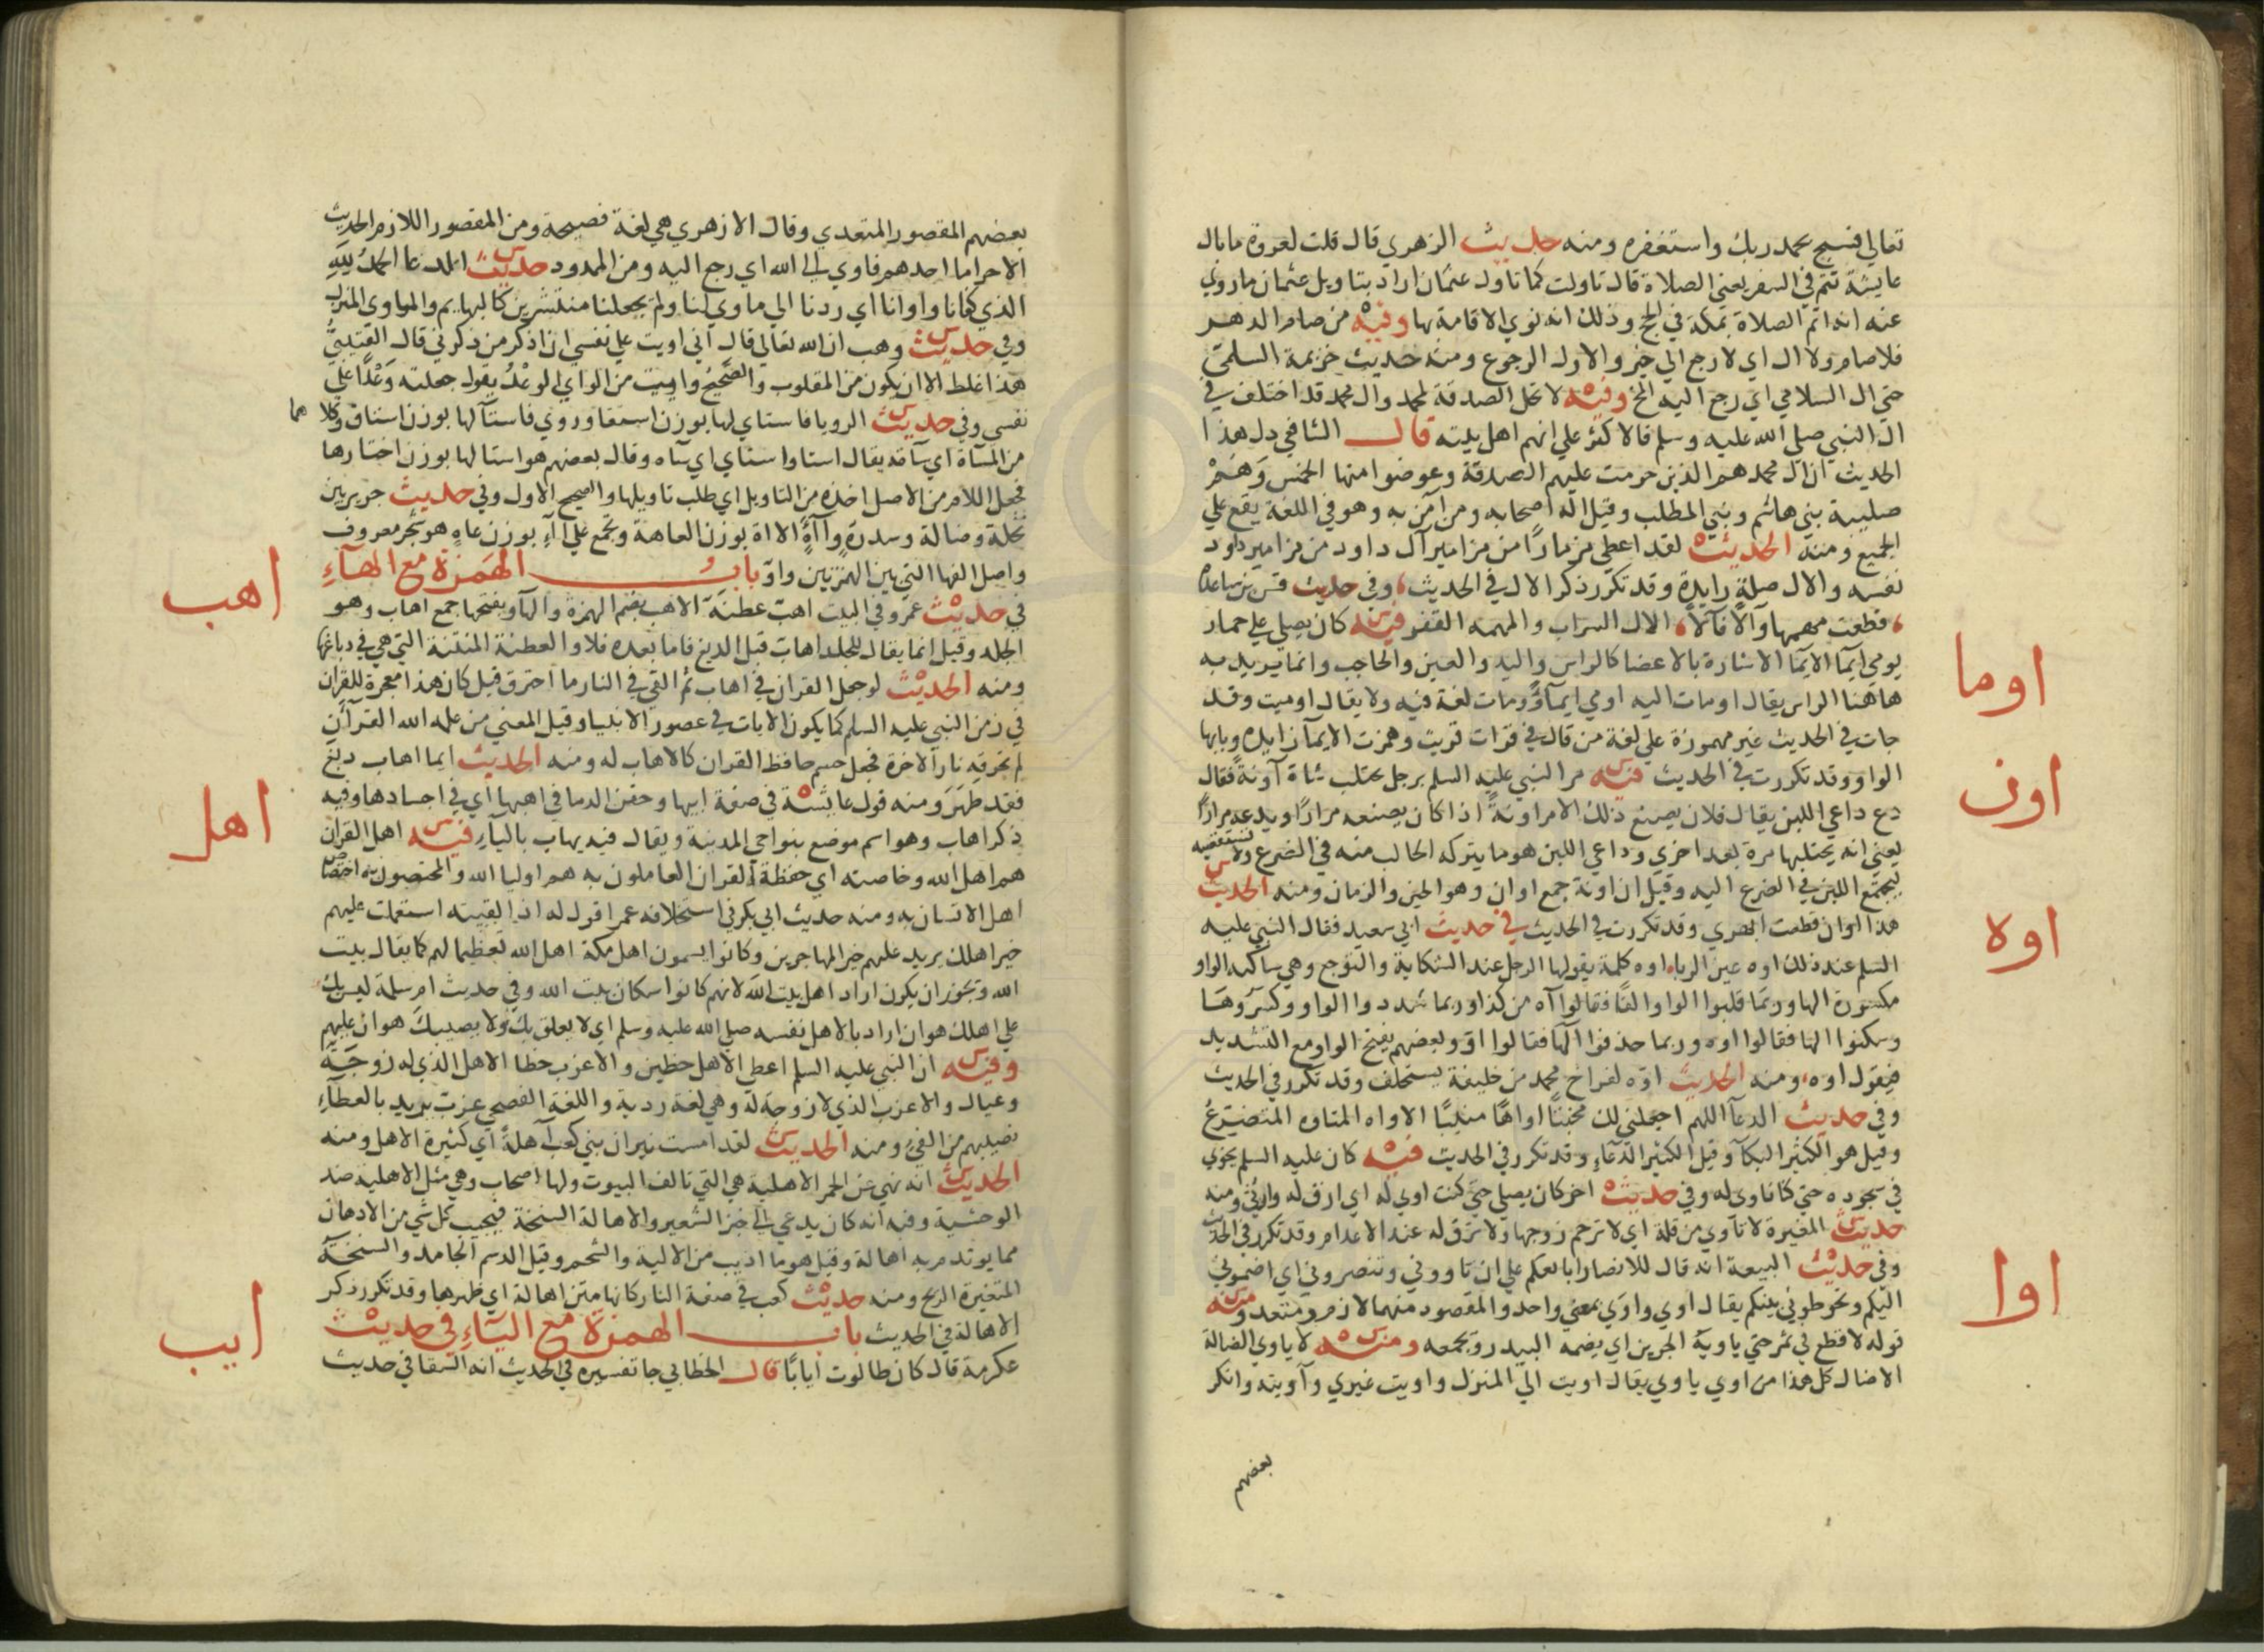 تعالي فسبح بحمد ربك واستغفره ومنه حديث الزهري قال قلت لعروة ما بال
عايشة تتم في السفر يعني الصلاة قال تاولت كما تاول عثمان اراد بتاويل عثمان ما روي
عنه انه اتم الصلاة بمكة في الحج وذلك انه نوي الاقامة بها وفيه من صام الدهر
فلا صام ولا ال اي لا رجع الي خير والاول الرجوع ومنه حديث خزيمة السلمي
حتي ال السلامي اي رجع اليه المخ وفيه لا تحل الصدقة لمحمد وال محمد قد اختلف في
ال النبي صلي الله عليه وسلم فالاكثر علي انهم اهل بيته قال الشافعي دل هذا
الحديث ان ال محمد هم الذين حرمت عليهم الصدقة وعوضوا منها الخمس وَهُمْ
صليبة بني هاشم وبني المطلب وقيل اله اصحابه ومن امن به وهو في اللغة يقع علي
الجميع ومنه الحديث لقد اعطي مزمارًا من مزامير آل داود من مزامير داود
نفسه والال صلة زايدة وقد تكرر ذكر الال في الحديث وفي حديث قس بن ساعدة
قطعت مهمها وآلاً فآلاً الال السراب والمهمه القفر فيه كان يصلي علي حمار
اوما
يومي ايمآ الايمآ الاشارة بالاعضا كالراس واليد والعين والحاجب وانما يريد به
هاهنا الراس يقال اومات اليه اومي ايمآ وومات لغة فيه ولا يقال اوميت وقد
جات في الحديث غير مهموزة علي لغة من قال في قرات قريت وهمزت الايمآ زايدة وبابها
اون
الواو وقد تكررت في الحديث فيه مر النبي عليه السلم برجل يحتلب شاة آونةً فقال
دع داعي اللبن يقال فلان يصنع ذلك الامر اونةً اذا كان يصنعه مرارًا ويدعه مرارًا
يعني انه يحتلبها مرة بعد اخري وداعي اللبن هو ما يتركه الحالب منه في الضرع ولا يستقصيه
ليجتمع اللبن في الضرع اليه وقيل ان اونة جمع اوان وهو الحين والزمان ومنه الحديث
اوه
هذا اوان قطعت ابهري وقد تكررت في الحديث في حديث ابي سعيد فقال النبي عليه
السلم عند ذلك اوه عين الربا اوه كلمة يقولها الرجل عند الشكاية والتوجع وهي ساكنة الواو
مكسورة الها وربما قلبوا الواو الفًا فقالوا آه من كذا وربما شددوا الواو وكسروها
وسكنوا الها فقالوا اوه وربما حذفوا الها فقالوا او وبعضهم يفتح الواو مع التشديد
فيقول اوه ومنه الحديث اوّه لفراخ محمد من خليفة يستخلف وقد تكرر في الحديث
وفي حديث الدعآ اللهم اجعلني لك مخبتًا اواهًا منيبًا الاواه المتاوه المتضرعُ
وقيل هو الكثير البكآ وقيل الكثير الدعآءِ وقد تكرر في الحديث فيه كان عليه السلم يخوي
اوا
في سجوده حتي كنا ناوي له وفي حديث اخر كان يصلي حتي كنت اوي له اي ارق له وارثي ومنه
حديث المغيرة لا تاوي من قلة اي لا ترحم زوجها ولا ترق له عند الاعدام وقد تكرر في الحديث
وفي حديث البيعة انه قال للانصار ابايعكم علي ان تاووني وتنصروني اي تضموني
اليكم وتحوطوني بينكم يقال اوي واوَي بمعني واحد والمقصود منهما لازم ومتعد ومنه
قوله لا قطع في ثمر حتي ياويه الجرين اي يضمه البيدر ويجمعه ومنه لا ياوي الضالة
الا ضال كل هذا من اوي ياوي يقال اويت الي المنزل واويت غيري وآويته وانكر
بعضهم
بعضهم المقصور المتعدي وقال الازهري هي لغة فصيحة ومن المقصور اللازم الحديث
الاخر اما احدهم فاوي الي الله اي رجع اليه ومن الممدود حديث الدعا الحمدُ للهِ
الذي كفانا واوانا اي ردنا الي ماوي لنا ولم يجعلنا منتشرين كالبهايم والماوي المنزل
وفي حديث وهب ان الله تعالي قال اني اويت علي نفسي ان اذكر من ذكرني قال القتيبيُّ
هذا غلط الا ان يكون من المقلوب والصحيحُ وايت من الواي الوعْدُ يقول جعلته وَعْدًا علي
نفسي وفي حديث الرويا فاستاي لها بوزن استقا وروي فاستآلها بوزن استاق وكلاهما
من المسآة اي سآته يقال استا واستاي اي سآه وقال بعضهم هو استالها بوزن اختارها
فجعل اللام من الاصل اخذه من التاويل اي طلب تاويلها والصحيح الاول وفي حديث جرير بين
نخلة وضالة وسدرةٍ وآآةٍ الااة بوزن العاهة وتجمع علي آآءٍ بوزن عاهٍ هو شجر معروف
واصل الفها التي بين الهمزتين واوّ باب الهَمزة مع الهآءِ
اهب
في حديث عمر وفي البيت اهبّ عطنةٌ الاهب بضم الهمزة والها وبفتحها جمع اهاب وهو
الجلد وقيل انما يقال للجلد اهاب قبل الدبغ فاما بعده فلا والعطنة المنتنة التي هي في دباغها
ومنه الحديث لو جعل القران في اهاب ثم القي في النار ما احترق قيل كان هذا معجزة للقران
في زمن النبي عليه السلم كما يكون الايات في عصور الانبيا وقيل المعني من علمه الله القرآن
لم تحرقه نار الاخرة فجعل جسم حافظ القران كالاهاب له ومنه الحديث ايما اهاب دبغ
فقد طهرَ ومنه قول عايشة في صفة ابيها وحقن الدما في اهبها اي في اجسادها وفيه
اهل
ذكر اهاب وهو اسم موضع بنواحي المدينة ويقال فيه يهاب باليآءِ فيه اهل القران
هم اهل الله وخاصته اي حفظة القران العاملون به هم اوليا الله والمختصون به اختصاص
اهل الانسان به ومنه حديث ابي بكر في استخلافه عمر اقول له اذا لقيته استعملت عليهم
خير اهلك يريد عليهم خير المهاجرين وكانوا يسمون اهل مكة اهل الله تعظيما لهم كما يقال بيت
الله ويجوز ان يكون اراد اهل بيت الله لانهم كانوا سكان بيت الله وفي حديث ام سلمة ليس بك
علي اهلك هوان اراد بالاهل نفسه صلي الله عليه وسلم اي لا يعلق بك ولا يصيبك هوان عليهم
وفيه ان النبي عليه السلم اعطي الاهل حظين والاعزب حظا الاهل الذي له زوجَةٌ
وعيال والاعزب الذي لا زوجة له وهي لغة ردية واللغة الفصحي عزب يريد بالعطآءِ
نصيبهم من الفيءِ ومنه الحديث لقد امست نيران بني كعب آهلةً اي كثيرة الاهل ومنه
الحديث انه نهي عن الحمر الاهلية هي التي تالف البيوت ولها اصحاب وهي مثل الاهلية ضد
الوحشية وفيه انه كان يدعي الي خبز الشعير والاهالة السنخة فيجيب كل شي من الادهان
مما يوتدم به اهالة وقيل هو ما اذيب من الالية والشحم وقيل الدسم الجامد والسنخة
المتغيرة الريح ومنه حديث كعب في صفة النار كانها متن اهالة اي ظهرها وقد تكرر ذكر
الاهالة في الحديث باب الهمزة مع اليآءِ في حديث
ايب
عكرمة قال كان طالوت ايابًا قال الخطابي جا تفسيره في الحديث انه السقا في حديث